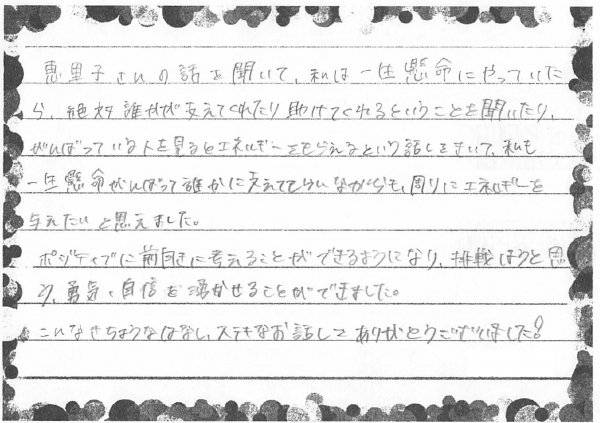 恵里子さんの話を聞いて、私は一生懸命にやっていた
ら、絶対誰かが支えてくれたり助けてくれるということを聞いたり、
がんばっている人を見るとエネルギーをもらえるという話しをきいて、私も
一生懸命がんばって誰かに支えてもらいながらも、周りにエネルギーを
与えたいと思えました。
ポジティブに前向きに考えることができるようになり、挑戦しようと思
う、勇気・自信を湧かせることができました。
こんなきちょうなはなし、ステキなお話しをありがとうございました!